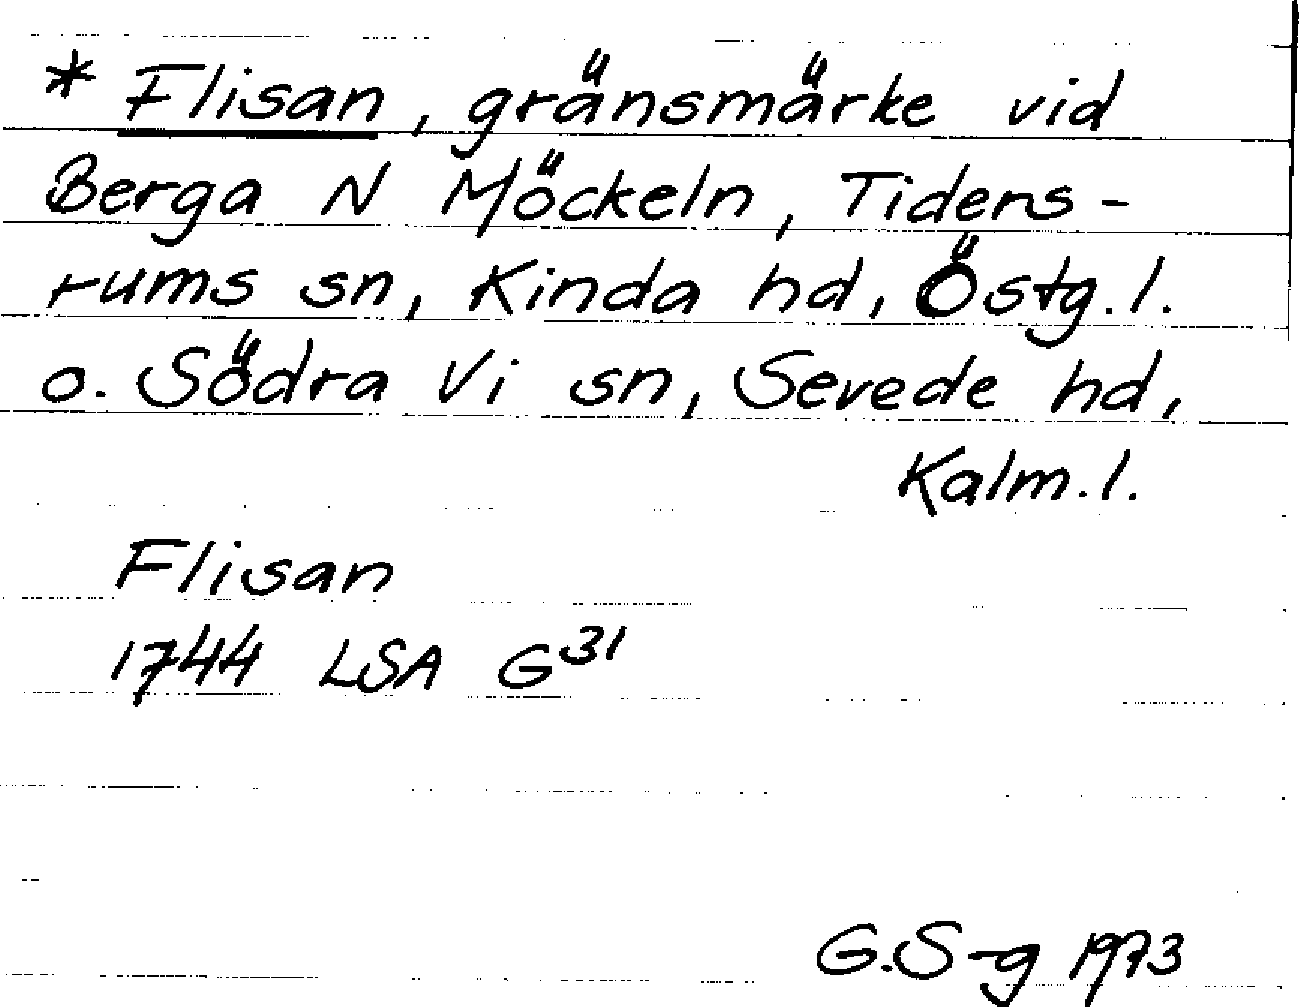 * Flisan, gränsmärke vid
Berga N Möckeln, Tiders-
rums sn, Kinda hd, Östg.l.
o. Södra Vi sn, Sevede hd,
Kalm.l.
Flisan
1744 LSA G31
G.S-g 1973